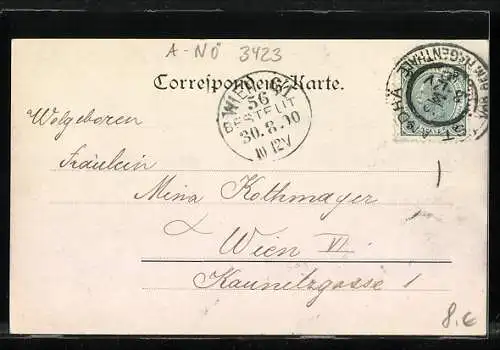 A-NÖ 3423
Correspondenz-Karte.
WIEN 6/1
56
BESTELLT
30.8.00
10 12V
ST. ANDRÄ
Wolgeboren
Fräulein
Mina Kothmayer
Wien VI.
Kaunitzgasse 1
8.€